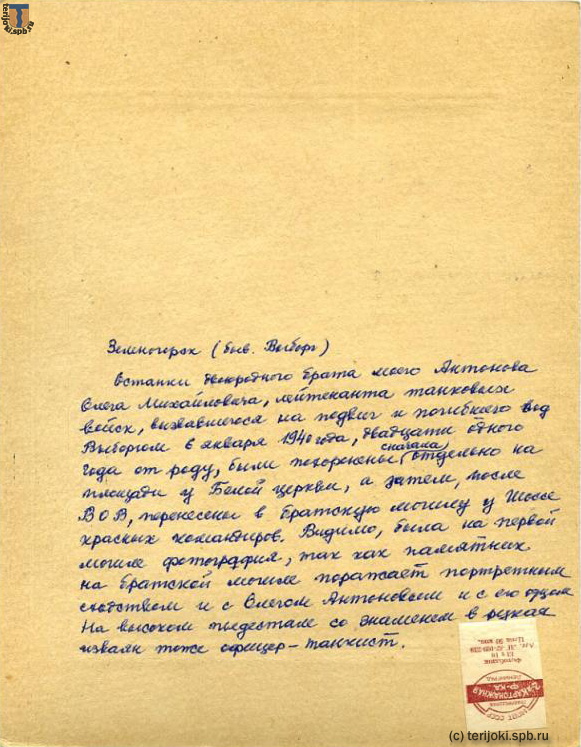 Зеленогорск (быв. Выборг)
Останки двоюродного брата моего Антонова
Олега Михайловича, лейтенанта танковых
войск, вызвавшегося на подвиг и погибшего под
Выборгом 6 января 1940 года, двадцати одного
года от роду, были похоронены сначала отдельно на
площади у Белой церкви, а затем, после
ВОВ, перенесены в братскую могилу у Шоссе
красных командиров. Видимо, была на первой
могиле фотография, так как памятник
на братской могиле поражает портретным
сходством и с Олегом Антоновым и с его отцом
На высоком пьедестале со знаменем в руках
изваян тоже офицер-танкист.
МСПТ СССР
КАРТОНАЖНАЯ
Ф-КА
ЛЕНИНГРАД
Фотобланк
13 x 18
Цена 30 коп.
(c) terijoki.spb.ru
terijoki.spb.ru